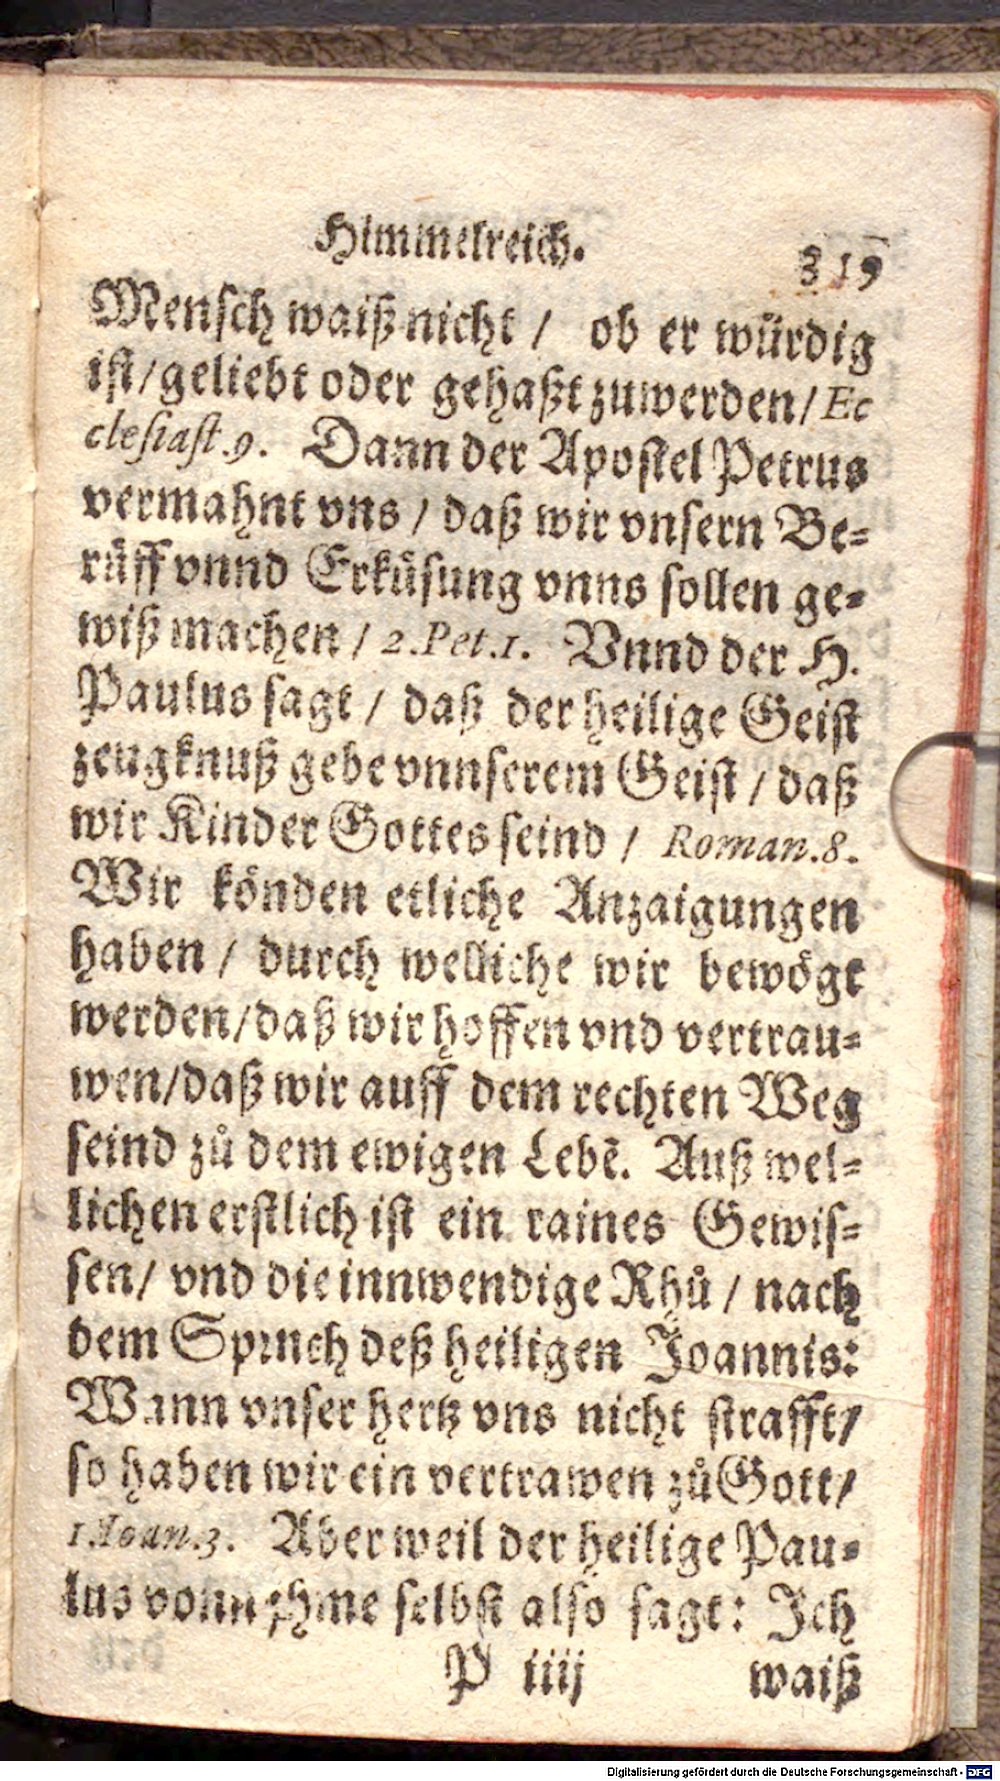 Himmelreich. 319
Mensch waiß nicht / ob er wuͤrdig
ist/geliebt oder gehaßt zuwerden/ Ec
clesiast.9. Dann der Apostel Petrus
vermahnt vns / daß wir vnsern Be-
rüff vnnd Erküsung vnns sollen ge-
wiß machen / 2.Pet.1. Vnnd der H.
Paulus sagt / daß der heilige Geist
zeugknuß gebe vnnserem Geist / daß
wir Kinder Gottes seind / Roman.8.
Wir könden etliche Anzaigungen
haben / durch welliche wir bewögt
werden/daß wir hoffen vnd vertrau-
wen/daß wir auff dem rechten Weg
seind zů dem ewigen Lebẽ. Auß wel-
lichen erstlich ist ein raines Gewis-
sen/ vnd die innwendige Rhů / nach
dem Spruch deß heiligen Joannis:
Wann vnser hertz vns nicht strafft/
so haben wir ein vertrawen zů Gott/
1.Ioan.3. Aber weil der heilige Pau-
lus vonn jhme selbst also sagt: Ich
P iiij waiß
Digitalisierung gefördert durch die Deutsche Forschungsgemeinschaft - DFG